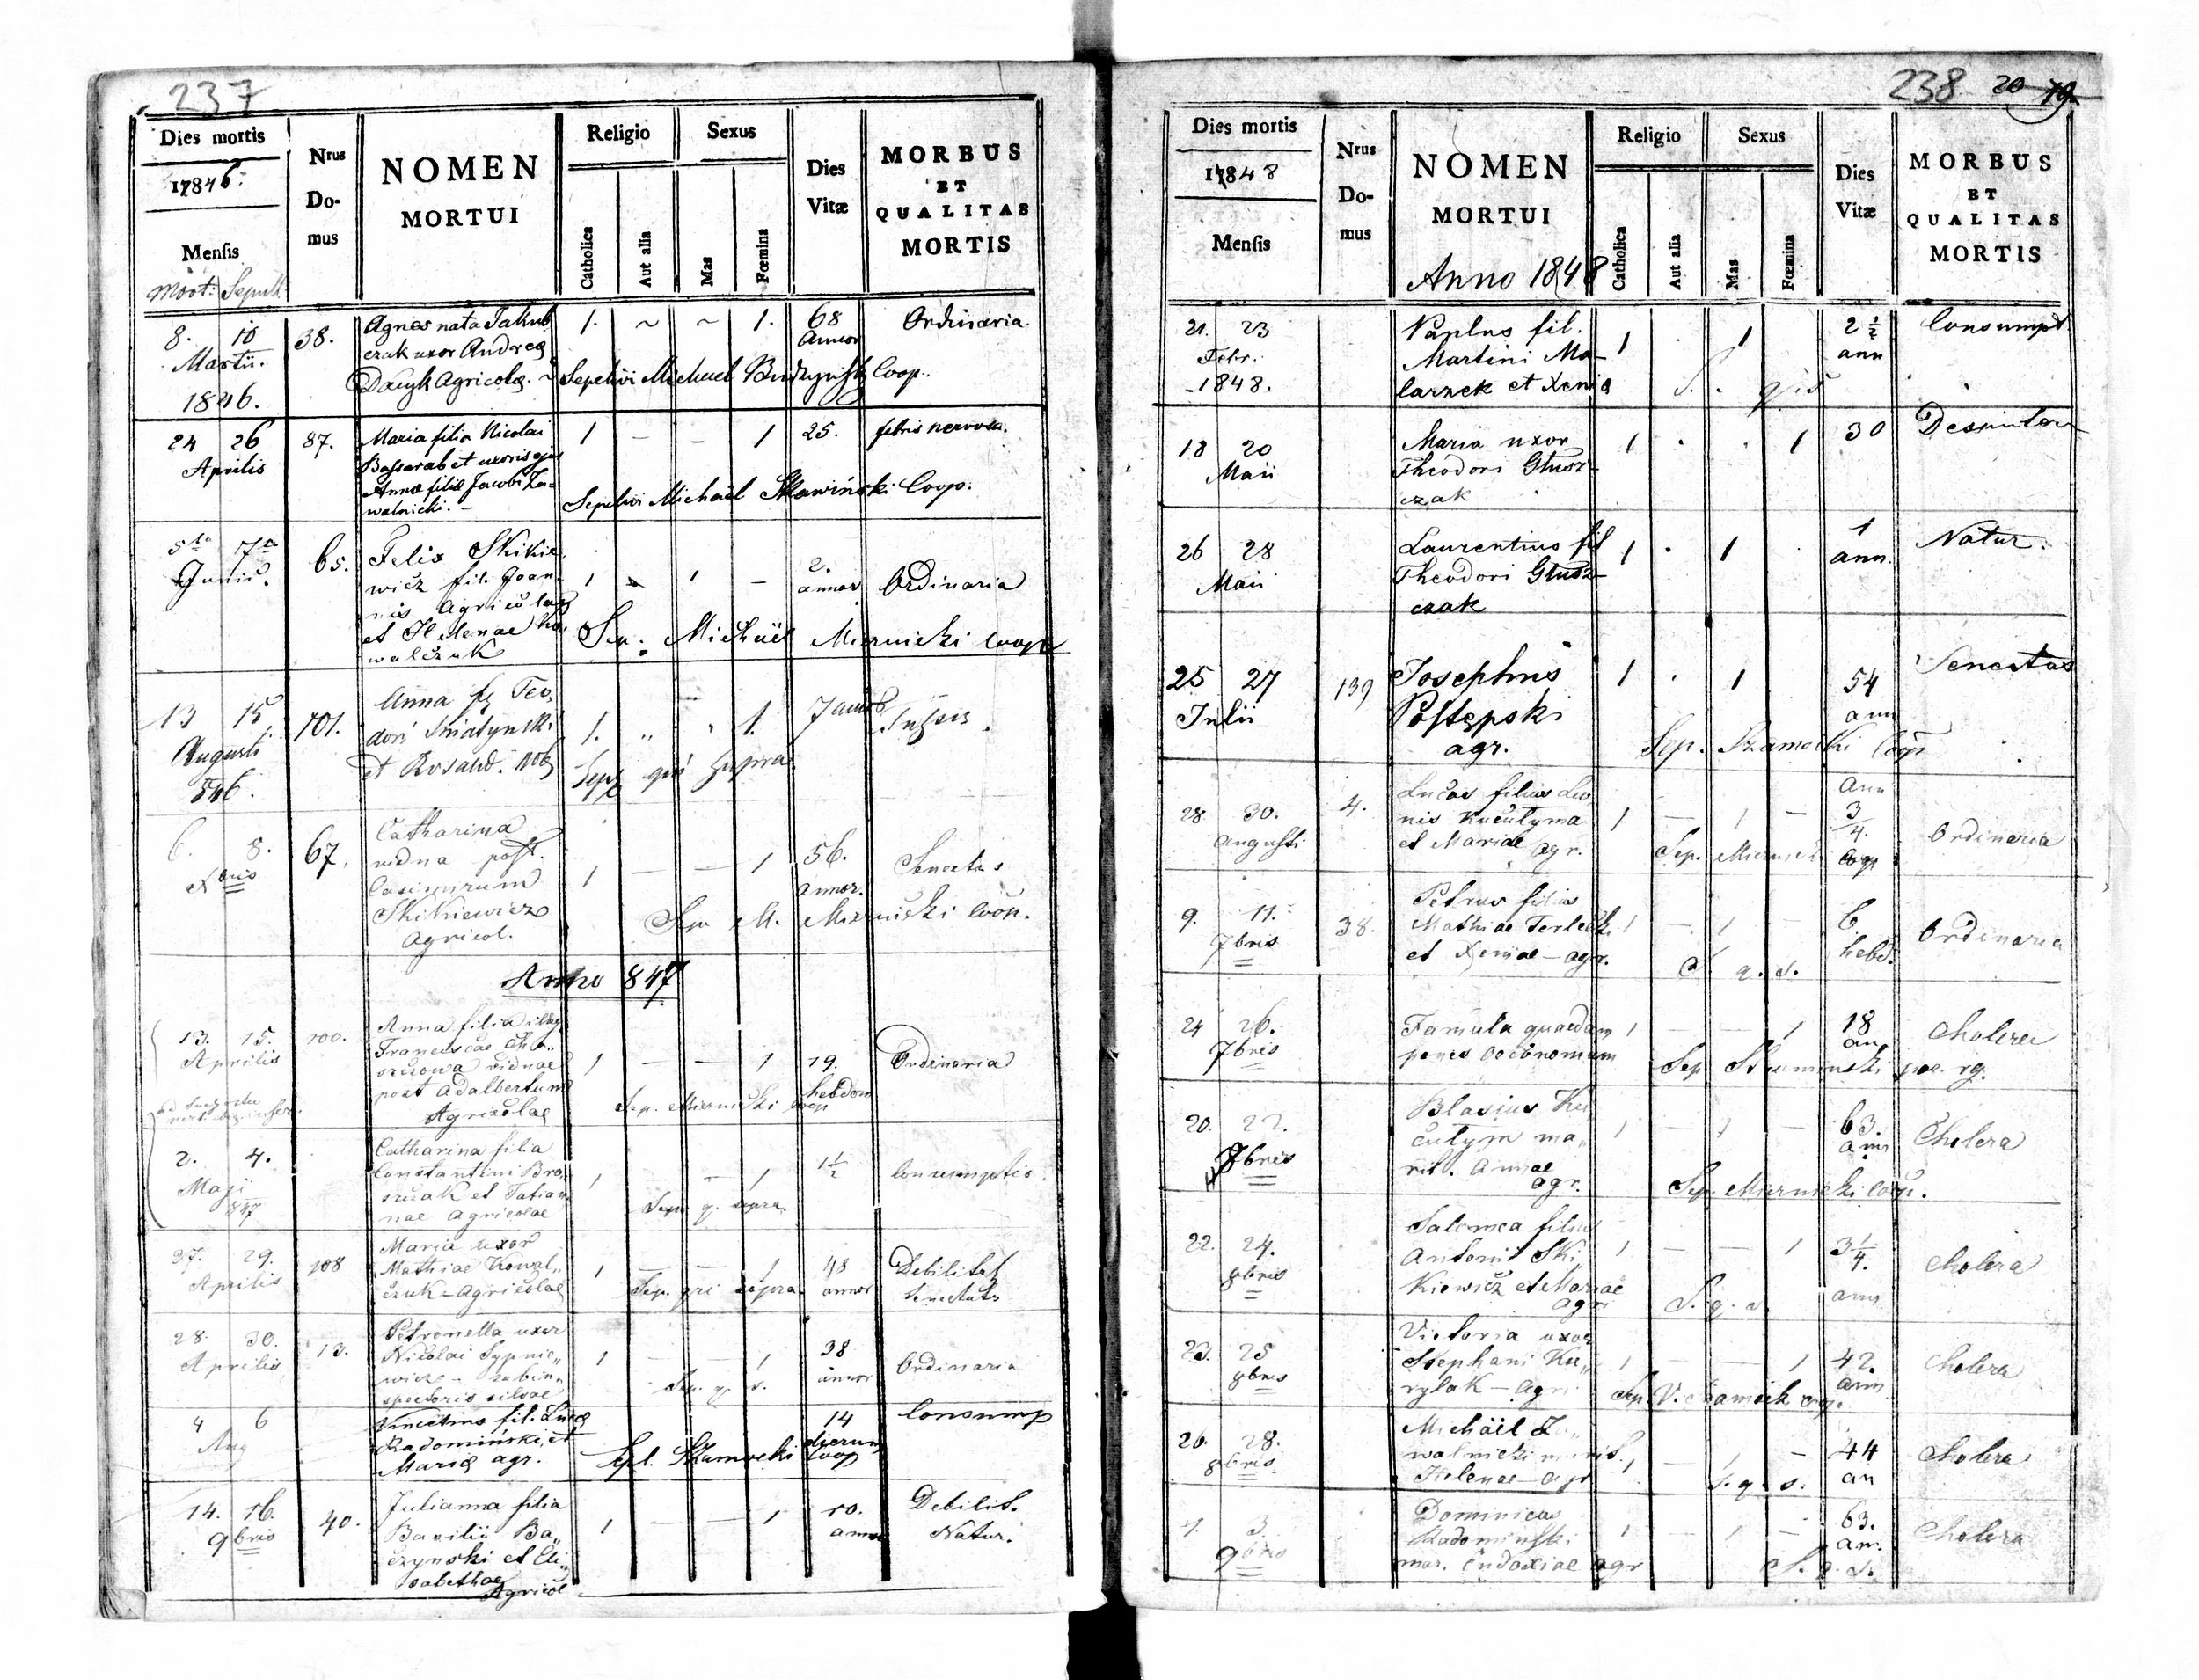 237
Dies mortis
17846.
Mensis
Mort: Sepult.
Nrus
Do-
mus
NOMEN
MORTUI
Religio
Catholica
Aut alia
Sexus
Mas
Fœmina
Dies
Vitæ
MORBUS
ET
QUALITAS
MORTIS
8. 10
Martii.
1846.
38.
Agnes nata Jakub
czak uxor Andreæ
Agricolæ.
1. ~ ~ 1.
68
Annor
Ordinaria.
Sepelivi Michael Coop.
24 26
Aprilis
87.
Maria filia Nicolai
Bassarab et uxoris ejus
Annæ filiæ Jacobi Za-
walnicki. -
1 - - 1
25.
febris nervosa.
Sepelivi Michaël Sławiński Coop.
5ta 7ma
Junii.
65.
Felix Skikie
wicz fil. Joan-
nis Agricolae
et Helenae Ko-
walczuk
1 1 -
2.
annor
Ordinaria
Sep. Michäel Miernicki coop
13 15
Augusti
846.
101.
Anna
dori Sniatynski
et
1. " " 1.
7
Sep qui supra
6. 8.
Xbris
67.
Catharina
vidua post.
Casimirum
Skikiewicz
Agricol.
1 - - 1
56.
annor.
Senectus
Sep M. Miernicki Coop.
Anno 847
13. 15.
Aprilis
100.
Anna filia illeg
Franciscae
vidnae
post Adalbertum
Agricolae
1 - - 1
19.
hebdom
Ordinaria
Sep. Miernicki coop
2. 4.
Maji
847
Catharina filia
Constantini Bro-
szczak et Tatian-
nae Agricolae
1 - - 1
1½
Consumptio.
Sep. q. supra.
27. 29.
Aprilis
108
Maria uxor
Mathiae Kowal„
czuk - Agricolae
1 - - 1
48
annor
Debilitas
Senectutis
Sep. qui supra.
28. 30.
Aprilis
13.
Petronella uxor
Nicolai Sypnie„
wicz - subin„
spectoris silvae
1 - - 1
38
annor
Ordinaria
Sep. q. s.
4 6
Aug
Vincetius fil. Lucæ
Radomiński et
Mariæ agr.
14
dierum
Consump
Sepl. Szamocki Coop
14. 16.
9bris
40.
Julianna filia
Basilii Ba„
czynski et Eli„
sabethae
Agricol
1 - - 1
10.
annor
Debilit.
Natur.
238 20 19
Dies mortis
17848
Mensis
Nrus
Do-
mus
NOMEN
MORTUI
Anno 1848
Religio
Catholica
Aut alia
Sexus
Mas
Fœmina
Dies
Vitæ
MORBUS
ET
QUALITAS
MORTIS
21. 23
Febr.
1848.
Paulus fil.
Martini Ma-
larzek et Xeniæ
1 1
2½
ann
Consumpt.
S. q. s.
18 20
Maii
Maria uxor
Theodori Głusz-
czak
1 . . 1
30
26 28
Maii
Laurentius fil
Theodori Głusz-
czak
1 . 1 .
1
ann.
Natur.
25 27
Julii
139
Josephus
Postępski
agr.
1 . 1
54
ann
Senectus
Sep. Szamocki Coop
28 30.
Augusti
4.
Lucas filius Leo
nis Kuculyma
et Mariae Agr.
1 - 1 -
Ann
3
4.
Ordinaria
Sep. Miernicki Coop
9. 11.
7bris
38.
Petrus filius
Mathiae Terlecki
et Xeniae - agr.
1 - 1 -
6.
hebd.
Ordinaria
S. q. s.
24 26.
7bris
Famula quaedam
penes Oeconomum
1 - - 1
18
an
Cholera
Sep
20. 22.
8bris
Blasius Ku
culym ma„
rit. Annae
agr.
1 - 1 -
63.
ann
Cholera
Sep. Miernicki Coop.
22. 24.
8bris
Salomea filia
Antonii Ski„
kiewicz et Mariae
agri
1 - - 1
3¼.
ann
Cholera
S. q. s.
23. 25
8bris
Victoria uxor
Stephani Ku„
rylak - Agri
1 - - 1
42.
ann
Cholera
Sep. V. Szamock coop.
26. 28.
8bris
Michäel Za„
walnicki marit.
Helenae - agr
1 - 1 -
44
an
Cholera
S. q. s.
1. 3.
9bris
Dominicus
Radominski
mar. Eudoxiae agr
1 1 -
63.
an.
Cholera
S. q. s.